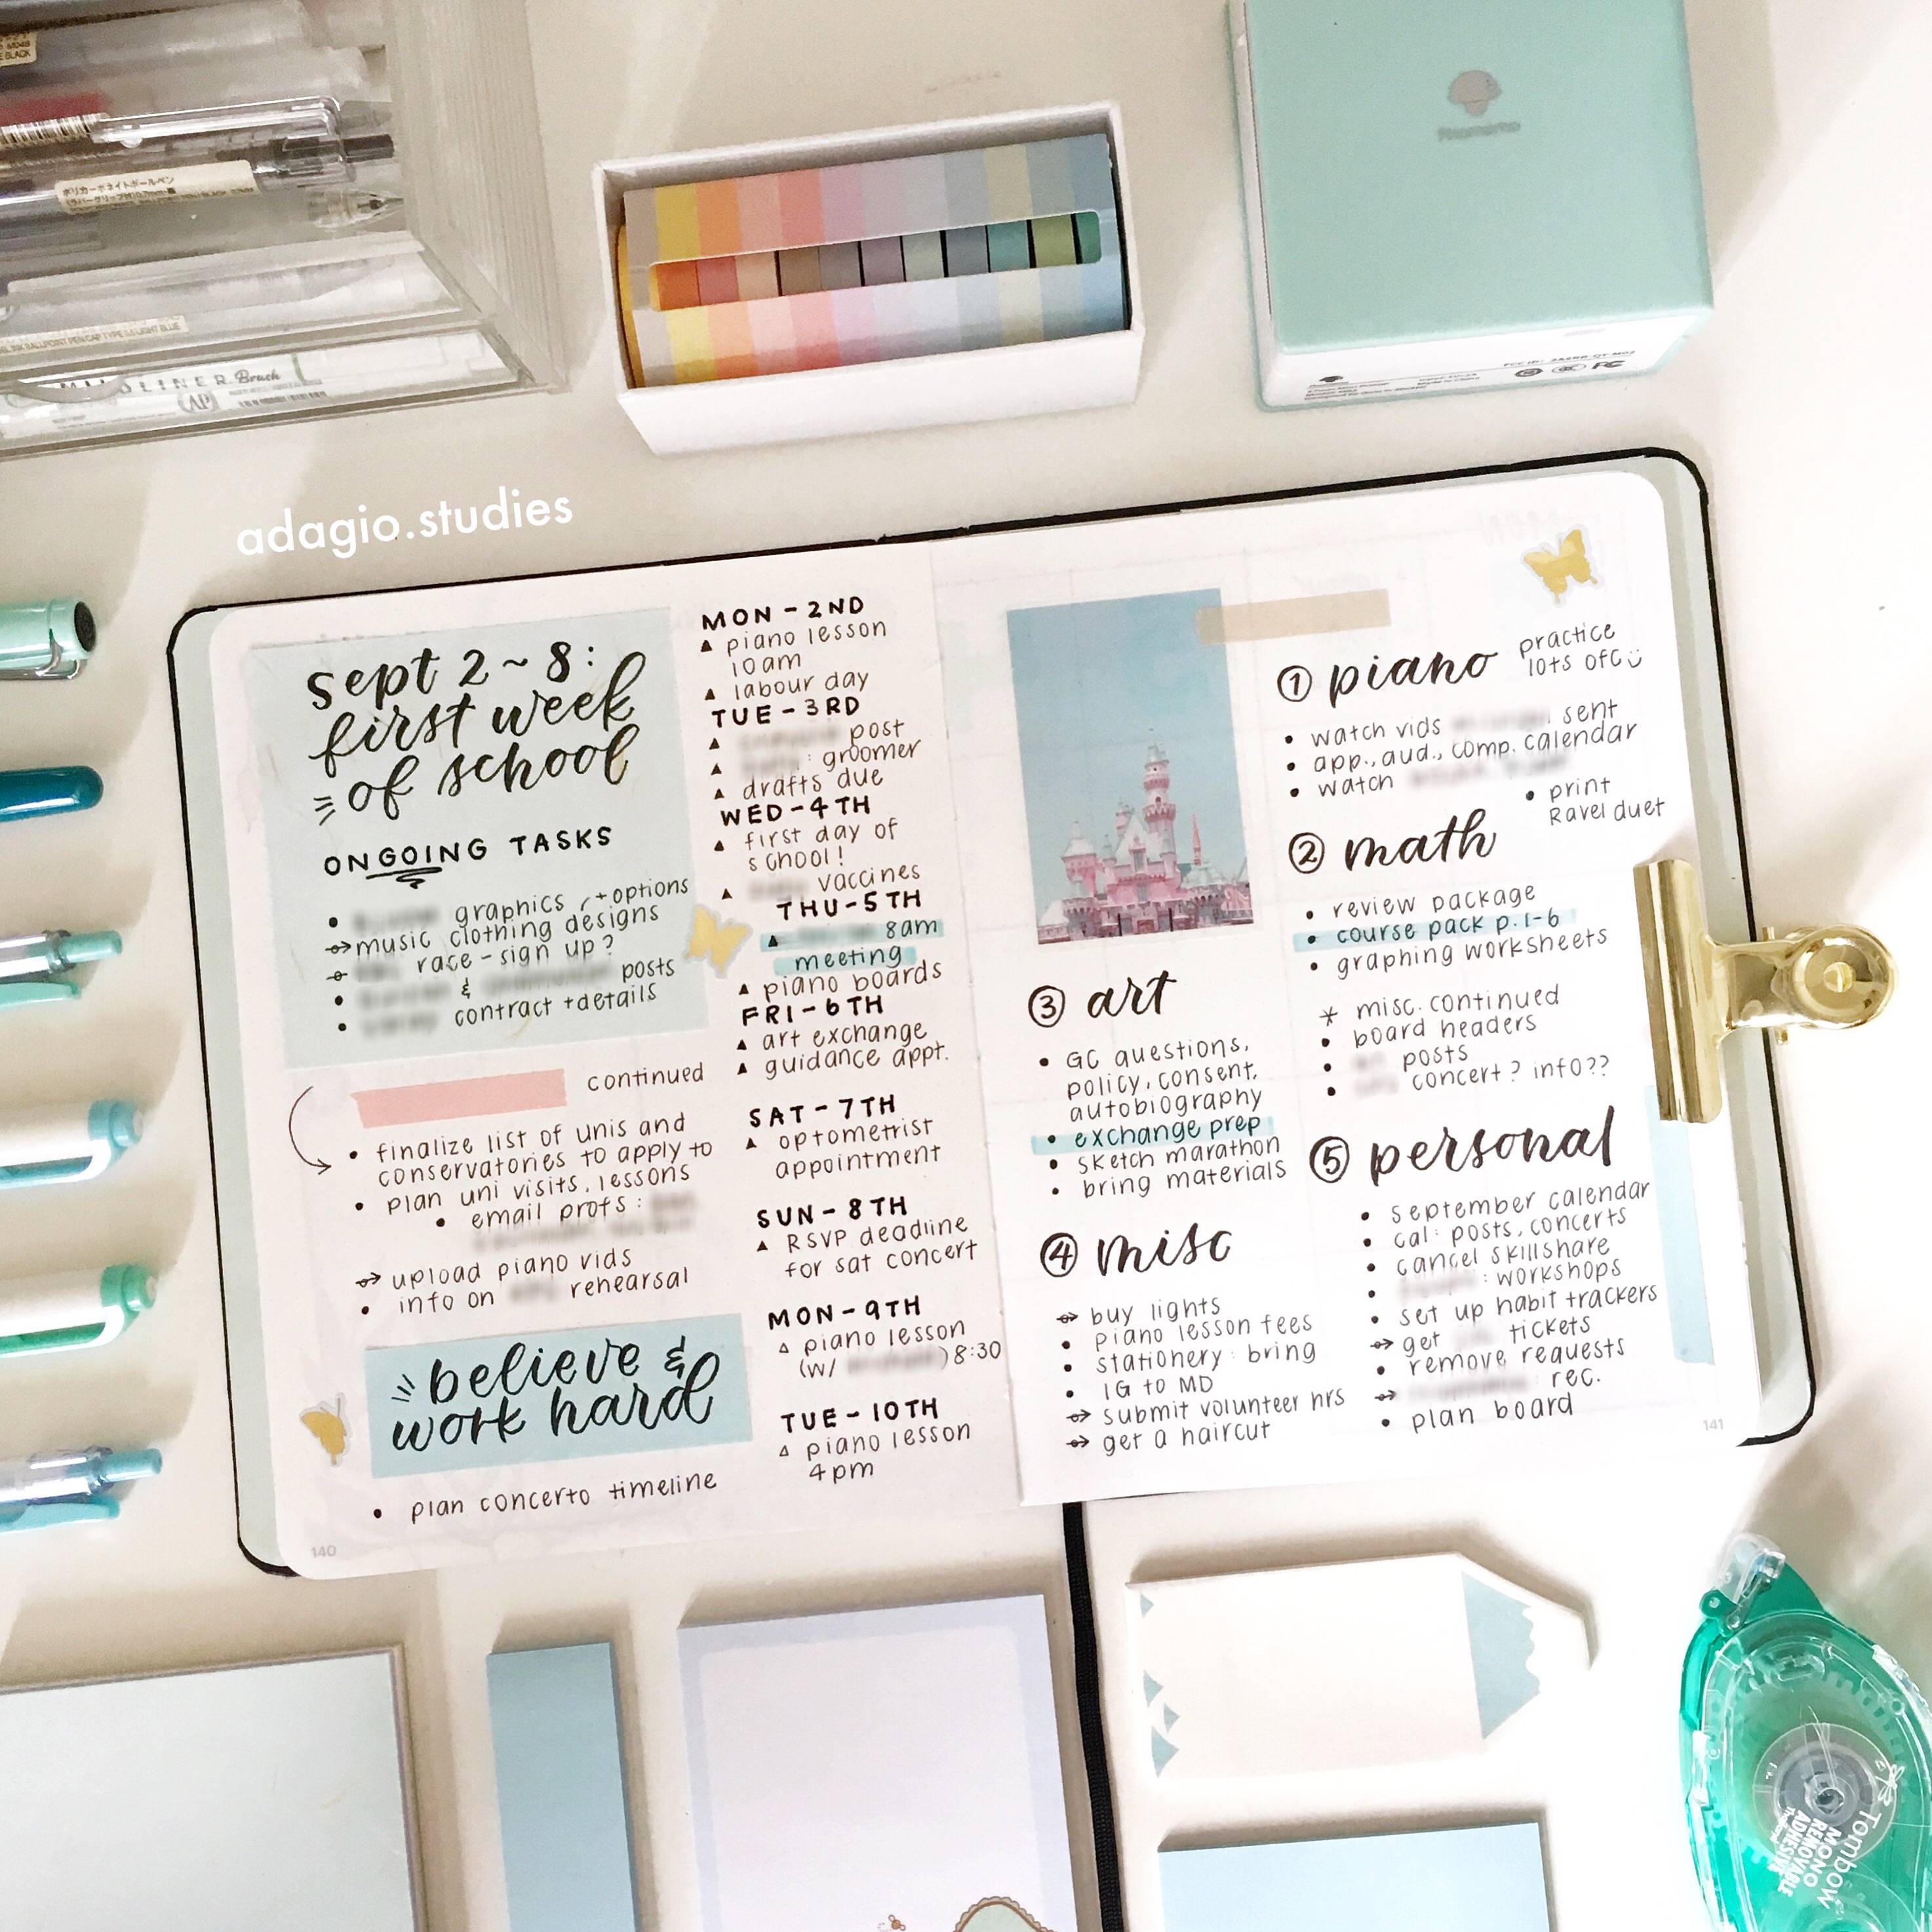 ポリカーボネイトボールペン
MILDLINER Brush
AP
Phomemo
FC
adagio.studies
sept 2~8:
first week
of school
ONGOING TASKS
graphics, + options
music clothing designs
race-sign up?
& posts
contract + details
continued
finalize list of unis and
conservatories to apply to
plan uni visits, lessons
email profs:
upload piano vids
info on rehearsal
believe &
work hard
plan concerto timeline
140
MON-2ND
piano lesson
10am
labour day
TUE-3RD
post
: groomer
drafts due
WED-4TH
first day of
school!
vaccines
THU-5TH
8am
meeting
piano boards
FRI-6TH
art exchange
guidance appt.
SAT-7TH
optometrist
appointment
SUN-8TH
RSVP deadline
for sat concert
MON-9TH
piano lesson
(w/ ) 8:30
TUE-10TH
piano lesson
4pm
① piano
practice
lots ofc
watch vids sent
app., aud., comp. calendar
watch
print
Ravel duet
② math
review package
course pack p.1-6
graphing worksheets
* misc. continued
board headers
posts
concert? info??
③ art
GC questions,
policy, consent,
autobiography
exchange prep
sketch marathon
bring materials
④ misc
buy lights
piano lesson fees
stationery: bring
IG to MD
submit volunteer hrs
get a haircut
⑤ personal
september calendar
cal: posts, concerts
cancel skillshare
: workshops
set up habit trackers
get tickets
remove requests
: rec.
plan board
141
Tombow
MONO
REMOVABLE
ADHESIVE